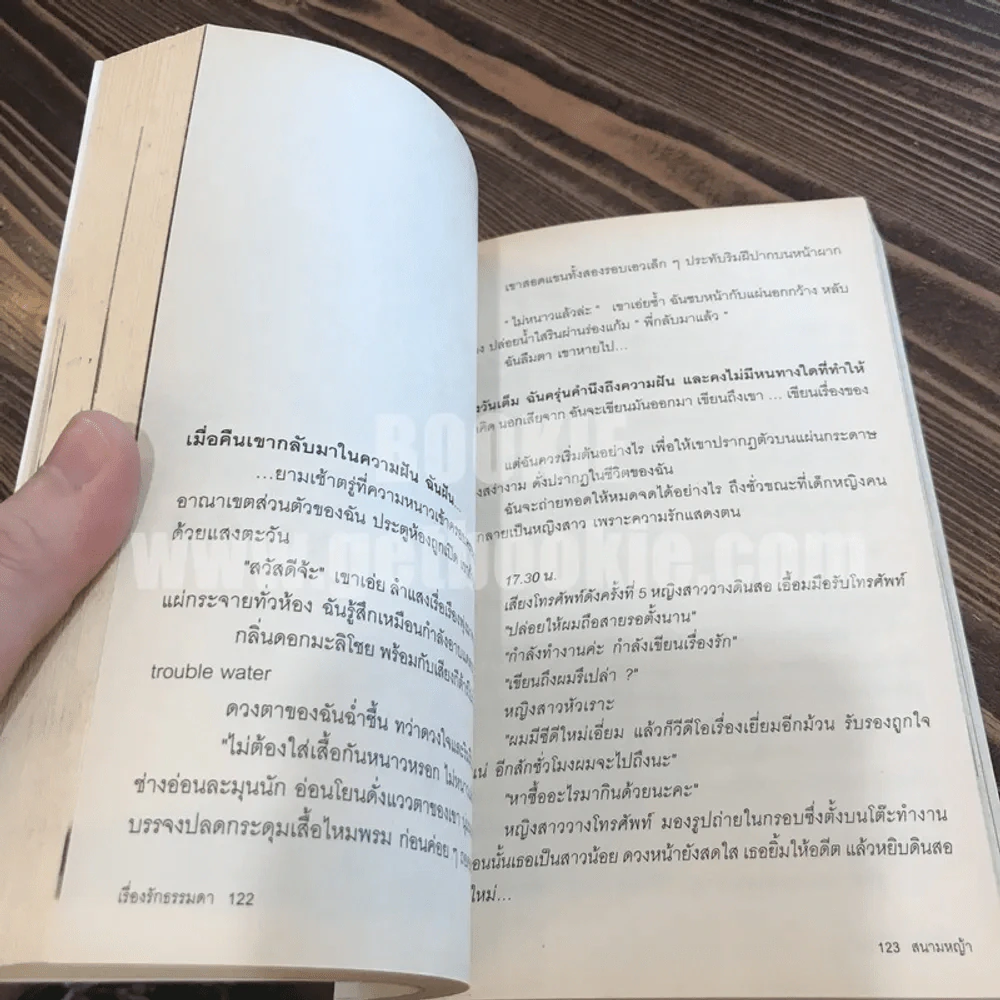 เมื่อคืนเขากลับมาในความฝัน ฉันฝัน
...ยามเช้าตรู่ที่ความหนาวเข้า
อาณาเขตส่วนตัวของฉัน ประตูห้องถูกเปิด
ด้วยแสงตะวัน
"สวัสดีจ้ะ" เขาเอ่ย ลำแสงเรื่อเรือง
แผ่กระจายทั่วห้อง ฉันรู้สึกเหมือนกำลัง
กลิ่นดอกมะลิโชย พร้อมกับเสียงกีต้าร์
trouble water
ดวงตาของฉันฉ่ำชื้น ทว่าดวงใจ
"ไม่ต้องใส่เสื้อกันหนาวหรอก
ช่างอ่อนละมุนนัก อ่อนโยนดั่งแววตาของเขา
บรรจงปลดกระดุมเสื้อไหมพรม ก่อนค่อย ๆ
เรื่องรักธรรมดา 122
เขาสอดแขนทั้งสองรอบเอวเล็ก ๆ ประทับริมฝีปากบนหน้าผาก
" ไม่หนาวแล้วล่ะ " เขาเอ่ยซ้ำ ฉันซบหน้ากับแผ่นอกกว้าง หลับ
ปล่อยน้ำใสรินผ่านร่องแก้ม " พี่กลับมาแล้ว "
ฉันลืมตา เขาหายไป...
วันเดิม ฉันครุ่นคำนึงถึงความฝัน และคงไม่มีหนทางใดที่ทำให้
คิด นอกเสียจาก ฉันจะเขียนมันออกมา เขียนถึงเขา ... เขียนเรื่องของ
แต่ฉันควรเริ่มต้นอย่างไร เพื่อให้เขาปรากฏตัวบนแผ่นกระดาษ
สง่างาม ดั่งปรากฏในชีวิตของฉัน
ฉันจะถ่ายทอดให้หมดจดได้อย่างไร ถึงชั่วขณะที่เด็กหญิงคน
กลายเป็นหญิงสาว เพราะความรักแสดงตน
17.30 น.
เสียงโทรศัพท์ดังครั้งที่ 5 หญิงสาววางดินสอ เอื้อมมือรับโทรศัพท์
"ปล่อยให้ผมถือสายรอตั้งนาน"
"กำลังทำงานค่ะ กำลังเขียนเรื่องรัก"
"เขียนถึงผมรึเปล่า ?"
หญิงสาวหัวเราะ
"ผมมีซีดีใหม่เอี่ยม แล้วก็วีดีโอเรื่องเยี่ยมอีกม้วน รับรองถูกใจ
อีกสักชั่วโมงผมจะไปถึงนะ"
"หาซื้ออะไรมากินด้วยนะคะ"
หญิงสาววางโทรศัพท์ มองรูปถ่ายในกรอบซึ่งตั้งบนโต๊ะทำงาน
ตอนนั้นเธอเป็นสาวน้อย ดวงหน้ายังสดใส เธอยิ้มให้อดีต แล้วหยิบดินสอ
ใหม่...
123 สนามหญ้า
BOOKIE
www.getbookie.com